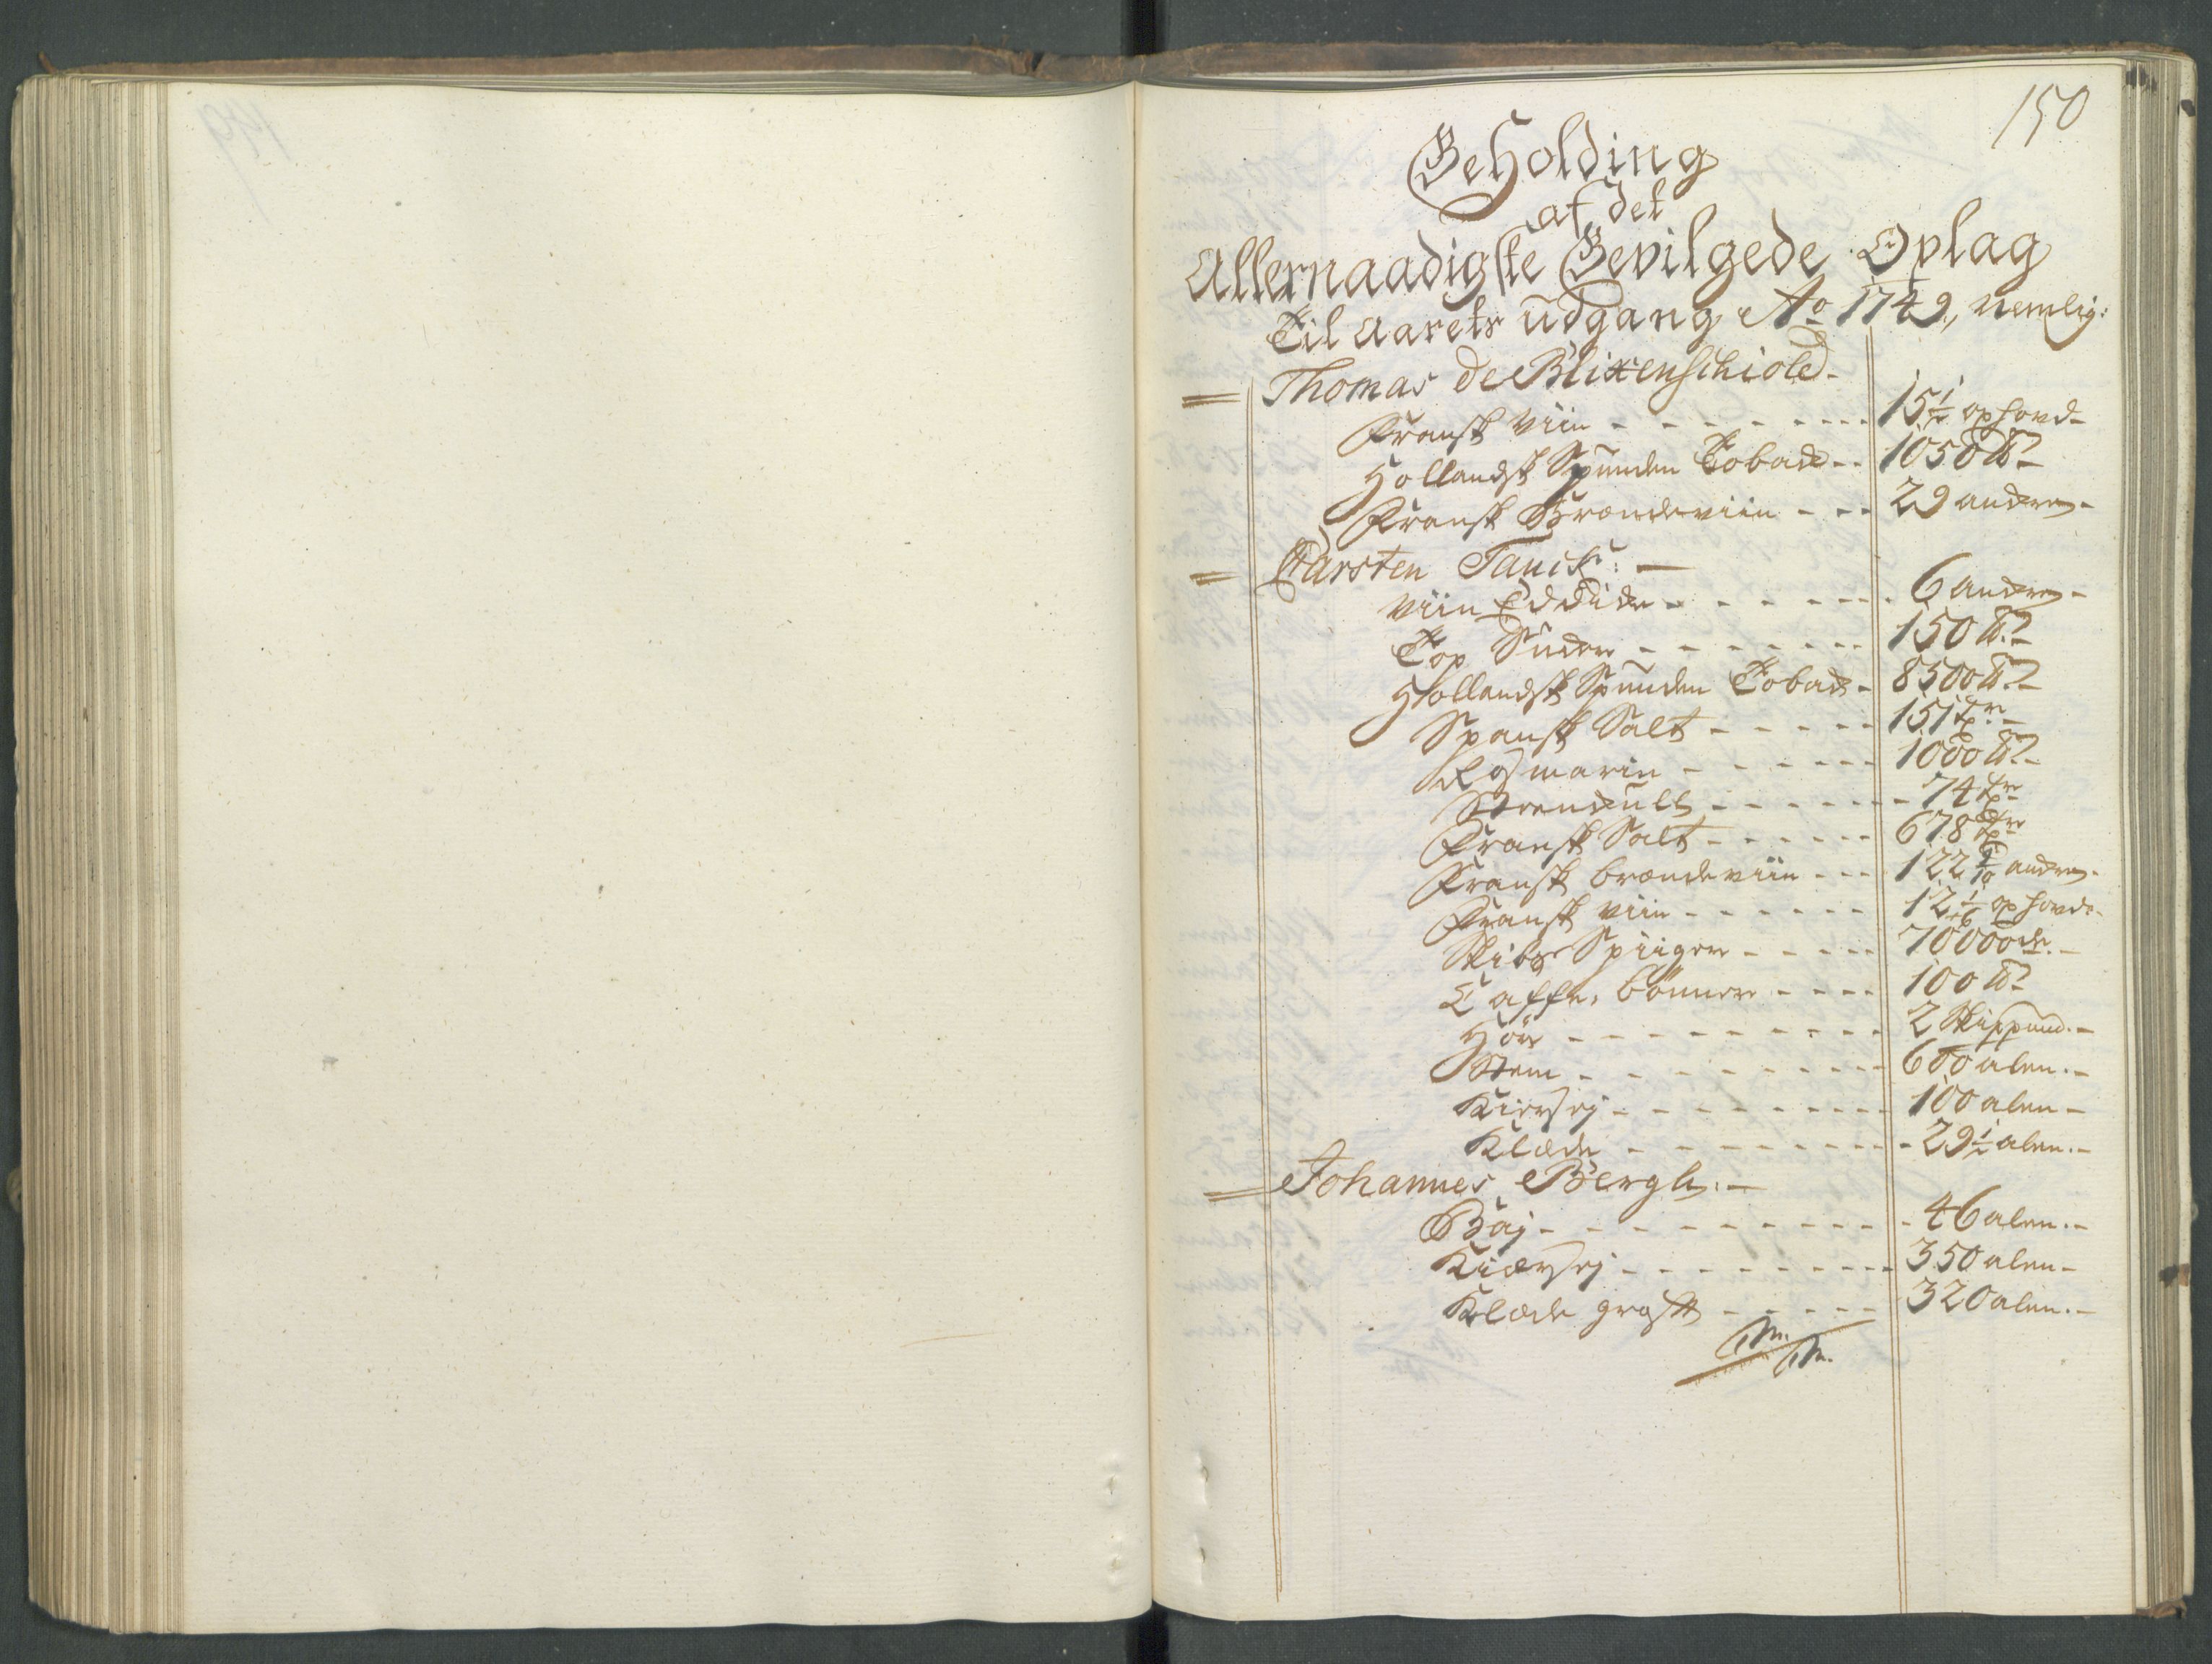 150
Beholding
af det
Allernaadigste Bevilgede Oplag
Til Aarets udgang Ao 1749, Nemlig:
Thomas de Blixenschiold
Fransk Viin - - - 15½ oxhovd
Hollandsk Spunden Toback - - 1050 ℔
Fransk Brændeviin - - - 29 anckere
Carsten Tanck: —
Viin Eddicke - - - 6 anckere
Top Sucker - - - 150 ℔
Hollandsk Spunden Toback - 8500 ℔
Spansk Salt - - - 151 Tdr
Rosmarin - - - 1000 ℔
Steenkull - - - 74 Tdr
Fransk Salt - - - 678 Tdr
Fransk brændeviin - - - 122 anckere
Fransk Viin - - - 12 1/6 oxhovde
Skibs Spiiger - - - 70000de
Caffe, bönner - - - 100 ℔
Hör - - - 2 Skippund
- - - 600 alen
Kiersej - - - 100 alen
Klæde - - - 29½ alen
Johannes Bergh: —
Baj - - - 46 alen
Kiersej - - - 350 alen
Klæde groft - - - 320 alen